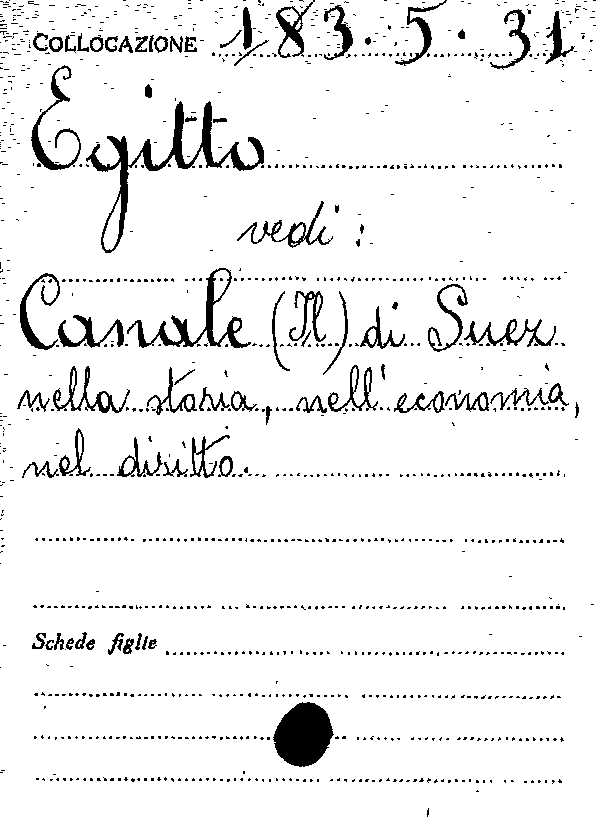 COLLOCAZIONE 183.5.31
Egitto
vedi:
Canale (Il) di Suez
nella storia, nell'economia,
nel diritto.
Schede figlie